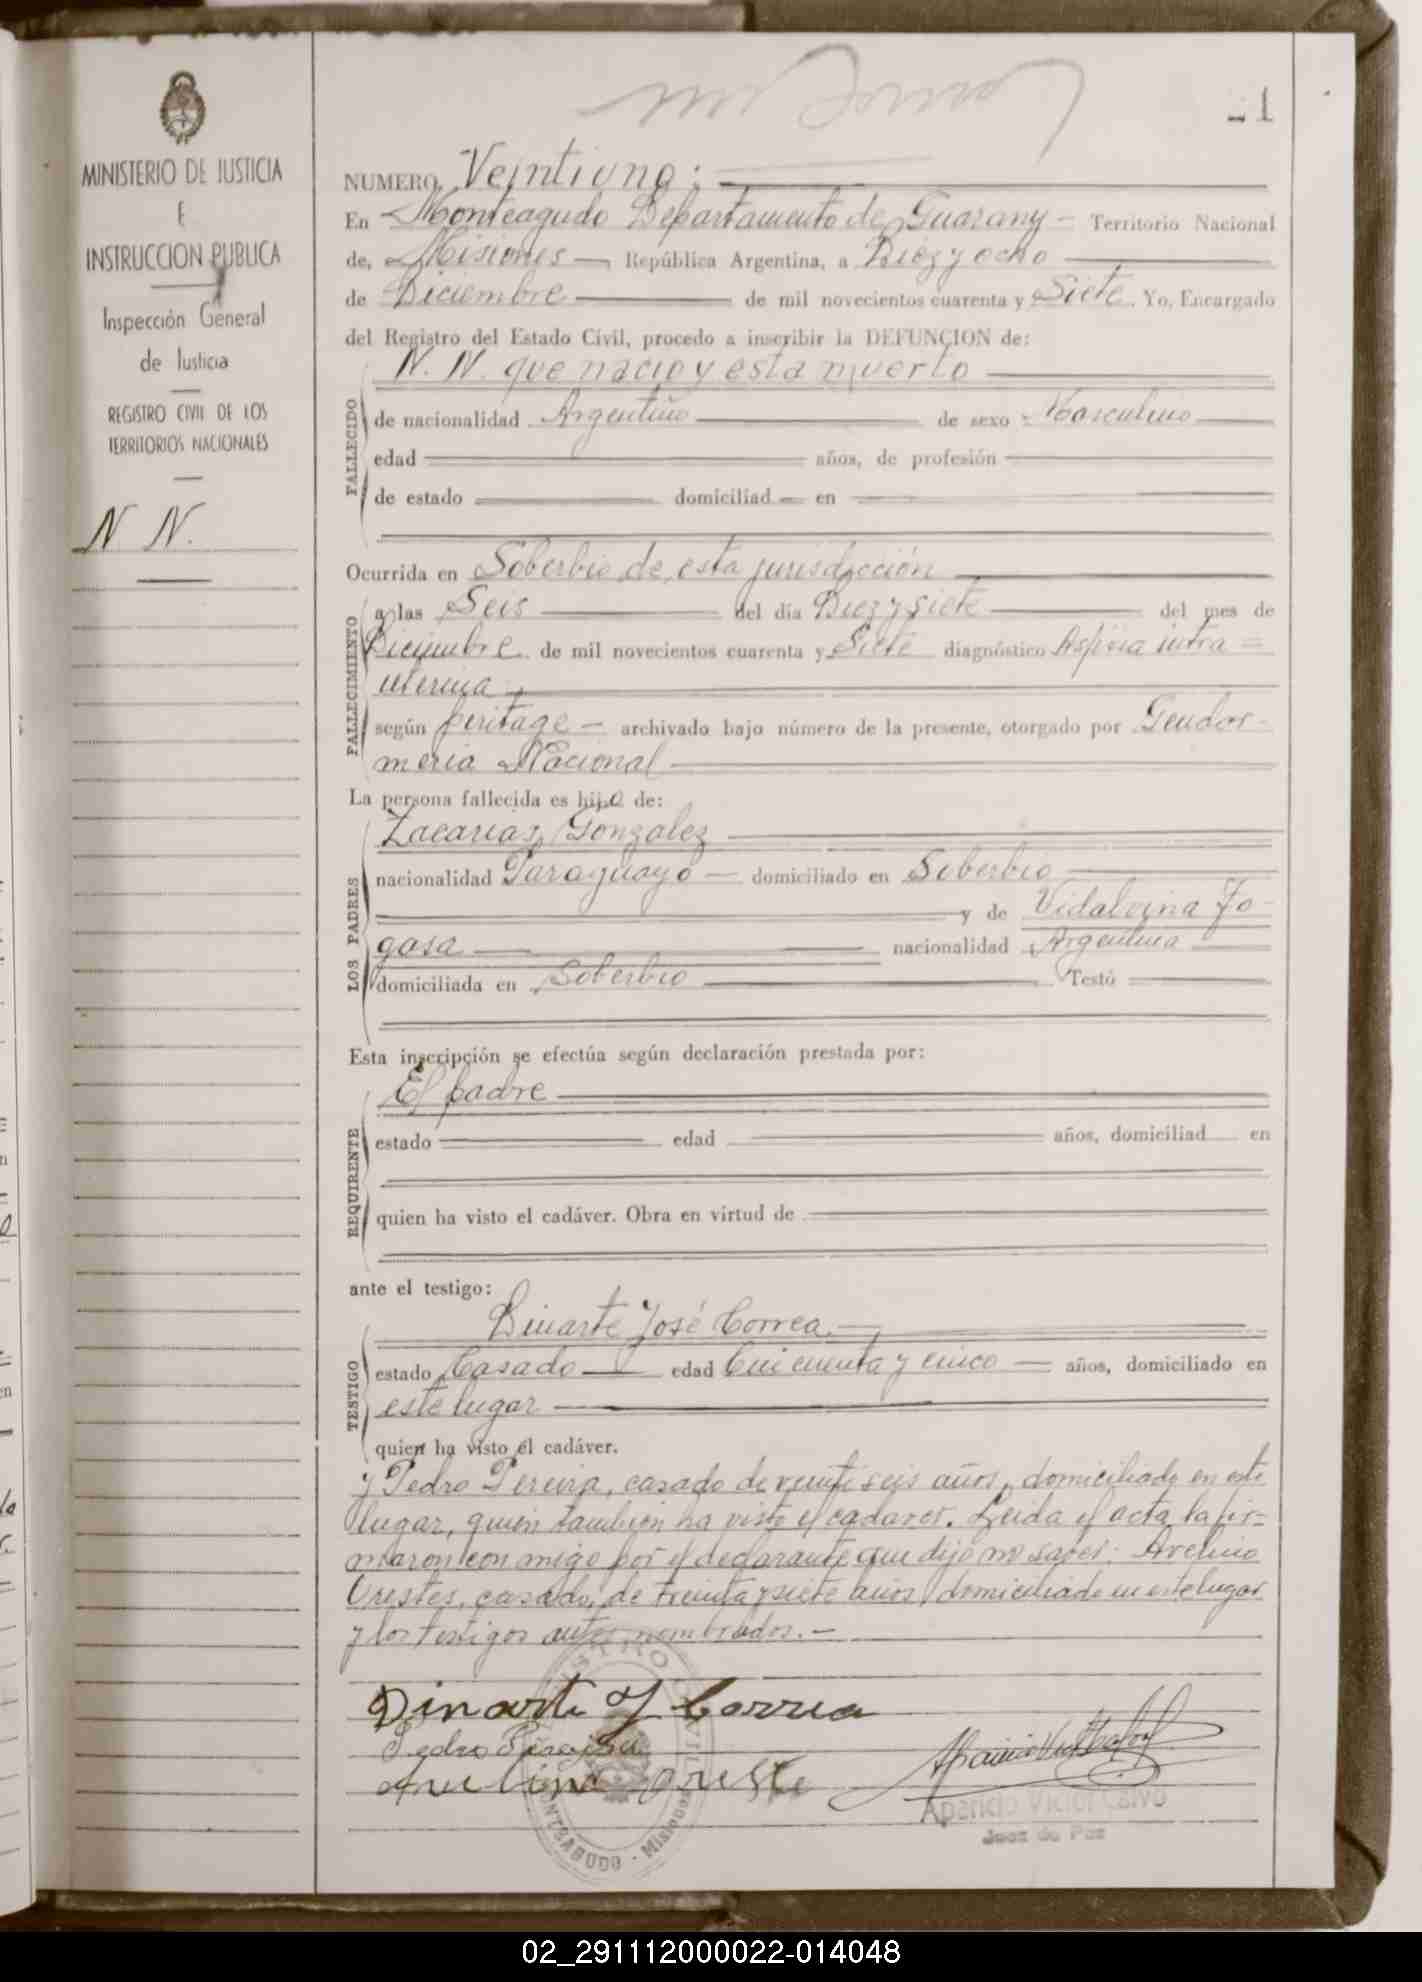 21
MINISTERIO DE JUSTICIA
E
INSTRUCCION PUBLICA
Inspección General
de Justicia
REGISTRO CIVIL DE LOS
TERRITORIOS NACIONALES
N N.
NUMERO Veintiuno:
En Monteagudo Departamento de Guarany - Territorio Nacional
de, Misiones - República Argentina, a Diez y ocho
de Diciembre de mil novecientos cuarenta y Siete. Yo, Encargado
del Registro del Estado Civil, procedo a inscribir la DEFUNCION de:
N. N. que nacio y esta muerto
FALLECIDO
de nacionalidad Argentino de sexo Masculino
edad años, de profesión
de estado domiciliad en
Ocurrida en Soberbio de esta jurisdicción
FALLECIMIENTO
a las Seis del día Diez y siete del mes de
Diciembre de mil novecientos cuarenta y Siete diagnóstico Asfixia intra =
uterina
según peritage - archivado bajo número de la presente, otorgado por Gendar-
meria Nacional
La persona fallecida es hijo de:
LOS PADRES
Zacarias Gonzalez
nacionalidad Paraguayo - domiciliado en Soberbio
y de Vidalvina Fo-
gasa nacionalidad Argentina
domiciliada en Soberbio Testó
Esta inscripción se efectúa según declaración prestada por:
REQUIRENTE
El padre
estado edad años, domiciliad en
quien ha visto el cadáver. Obra en virtud de
ante el testigo:
TESTIGO
Dinarte José Correa -
estado Casado edad Cincuenta y cinco - años, domiciliado en
este lugar
quien ha visto el cadáver.
y Pedro Pereira, casado de veinti seis años, domiciliado en este
lugar, quien tambien ha visto el cadaver. Leida el acta la fir=
maron con migo por el declarante que dijo no saber: Avelino
Orestes, casado, de treinta y siete años domiciliado en este lugar
y los testigos antes nombrados. -
Dinarte J Correa
Pedro Pereira
Avelino Oreste
REGISTRO CIVIL
MONTEAGUDO - Misiones
Aparicio Victor Calvo
Juez de Paz
02_291112000022-014048